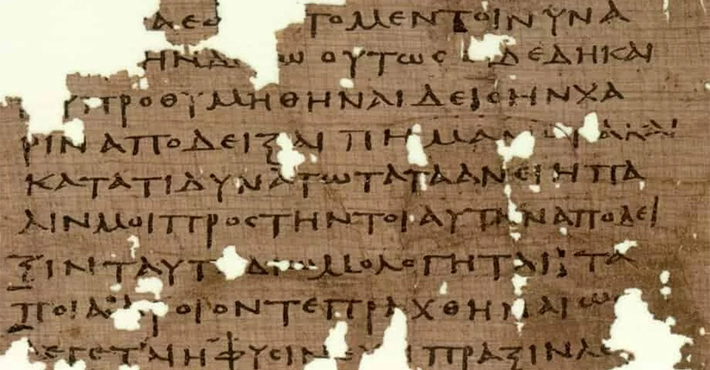 ΑΕΟ ΤΟΜΕΝΤΟΙΝΥΝΑ
ΗΝΔ Ω ΟΥΤΩΣ ΔΕΔΗΚΑΙ
ΥΠΡΟΘΥΜΗΘΗΝΑΙΔΕΙΣΗΝΧΑ
ΡΙΝΑΠΟΔΕΙΞΑΙ ΠΗΜΑΛ ΚΑΙ
ΚΑΤΑΤΙΔΥΝΑΤΩΤΑΤΑΑΝΕΙΗΠΑ
ΛΙΝΜΟΙΠΡΟΣΤΗΝΤΟΙΑΥΤΗΝΑΠΟΔΕΙ
ΞΙΝΤΑΥΤ ΔΙΟΜΟΛΟΓΗΤΑΙ ΤΑ
ΠΟΙΑ ΟΙΟΝΤΕΠΡΑΧΘΗΝΑΙΩΣ
ΛΕΓΕΤΑΙΗΦΥΣΙΝΕΧΕΙΠΡΑΞΙΝΛΕ